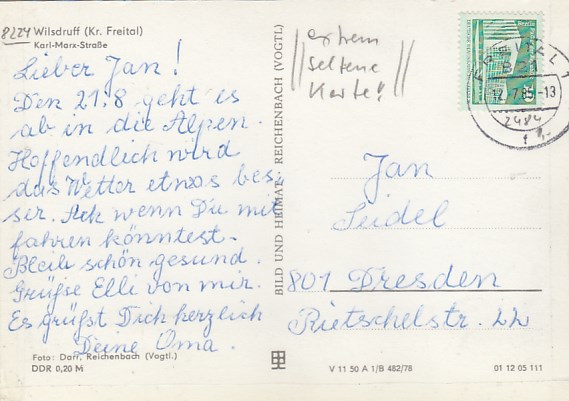 8224 Wilsdruff (Kr. Freital)
Karl-Marx-Straße
Lieber Jan!
Den 21.8 geht es
ab in die Alpen.
Hoffendlich wird
das Wetter etwas bes-
ser. Ach wenn Du mit
fahren könntest.
Bleib schön gesund.
Grüße Elli von mir.
Es grüßt Dich herzlich
Deine Oma.
Foto: Darr, Reichenbach (Vogtl.)
DDR 0,20 M
BILD UND HEIMAT REICHENBACH (VOGTL)
extrem
seltene
Karte!
821
-13
Jan
Seidel
801 Dresden
Rietschelstr. 22
V 11 50 A 1/B 482/78
01 12 05 111